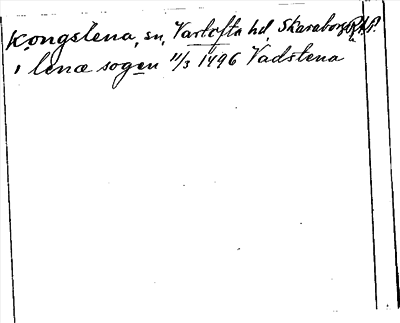 Kongslena, sn, Vartofta hd, Skaraborgs
i lenæ sogen 11/3 1496 Vadstena